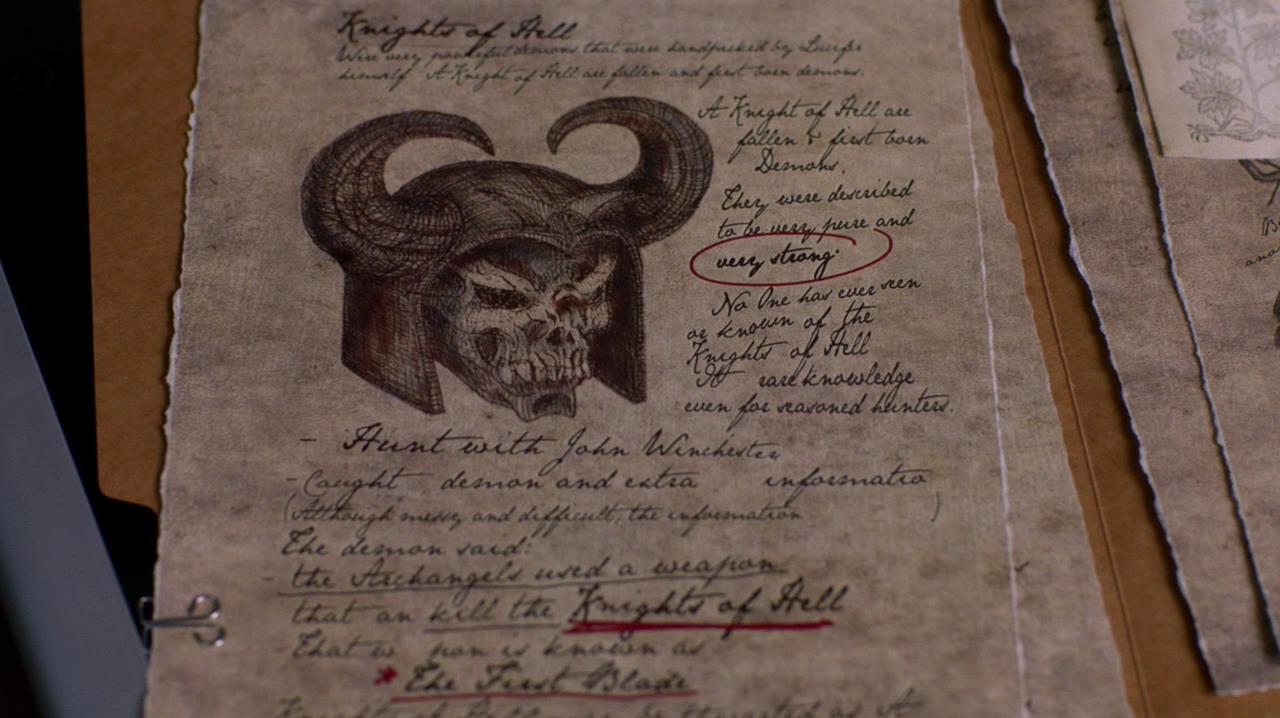 Knights of Hell
Were very powerful demons that were handpicked by Lucifer
himself. A Knight of Hell are fallen and first born demons.
A Knight of Hell are
fallen & first born
Demons.
They were described
to be very pure and
very strong.
No One has ever seen
or known of the
Knights of Hell
It rare knowledge
even for seasoned hunters.
- Hunt with John Winchester
- Caught demon and extra informatio
(Although messy and difficult, the information )
The demon said:
- the Archangels used a weapon
that an kill the Knights of Hell
- That w pon is known as
* The First Blade
Knights of Hell